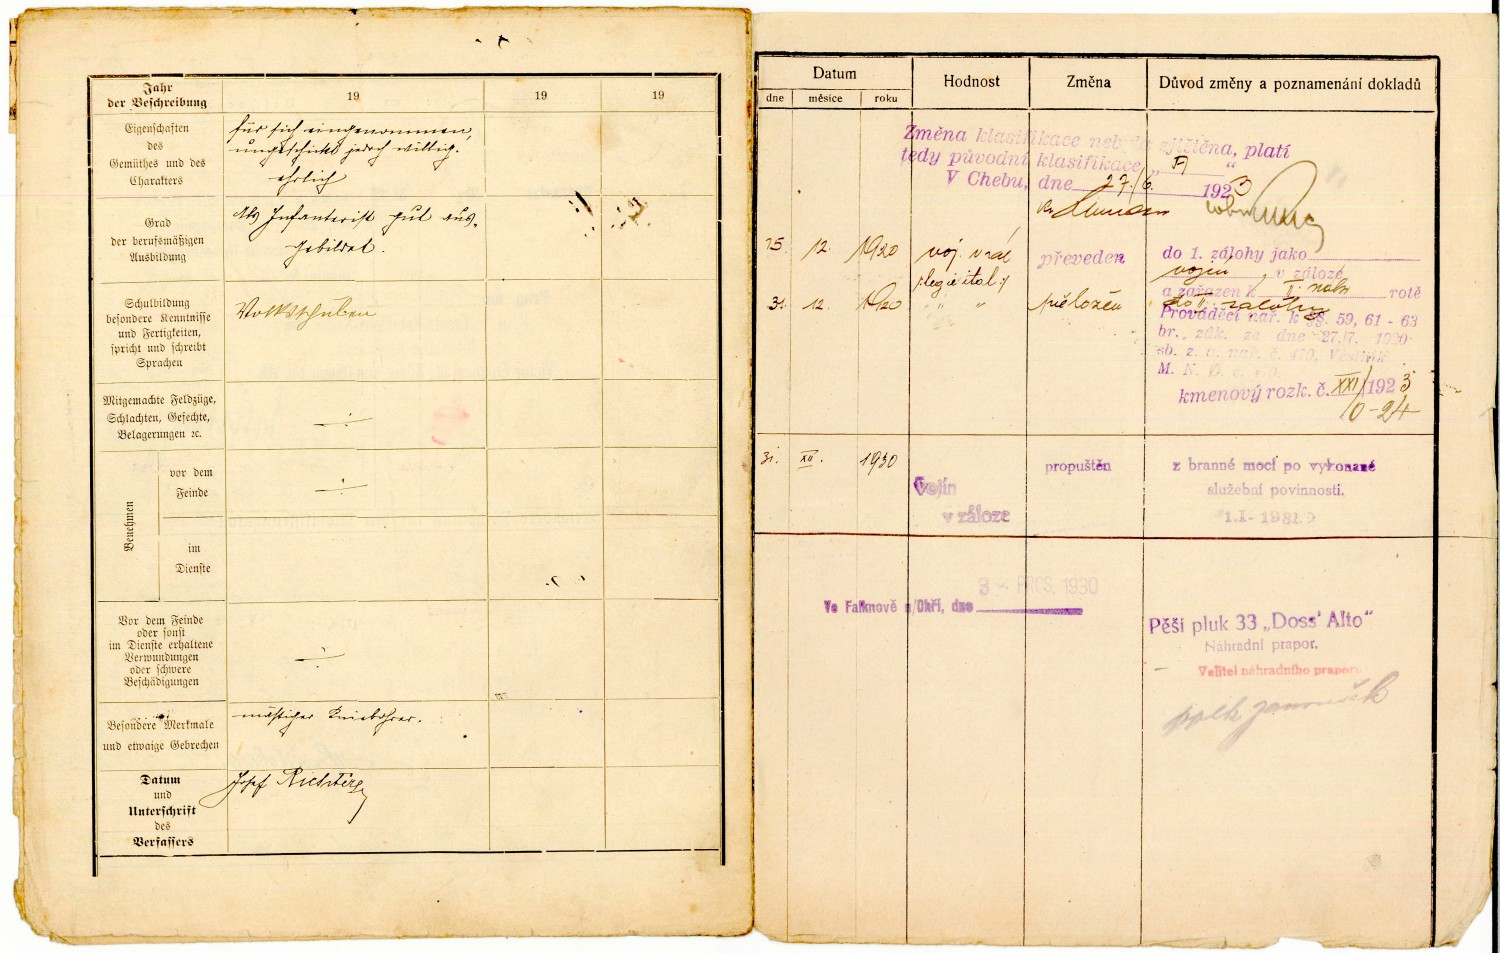 Jahr
der Beschreibung
19
19
19
Eigenschaften
des
Gemüthes und des
Charakters
für sich eingenommen,
ungeschickt jedoch willig.
ehrlich
Grad
der berufsmäßigen
Ausbildung
Als Infanterist gut aus-
gebildet.
Schulbildung
besondere Kenntnisse
und Fertigkeiten,
spricht und schreibt
Sprachen
Volksschulen
Mitgemachte Feldzüge,
Schlachten, Gefechte,
Belagerungen ꝛc.
Benehmen
vor dem
Feinde
im
Dienste
Vor dem Feinde
oder sonst
im Dienste erhaltene
Verwundungen
oder schwere
Beschädigungen
Besondere Merkmale
und etwaige Gebrechen
Datum
und
Unterschrift
des
Verfassers
Josef
Datum
dne měsíce roku
Hodnost
Změna
Důvod změny a poznamenání dokladů
Změna klasifikace nebyla zjištěna, platí
tedy původní klasifikace „ A “
V Chebu, dne 27./6. 1923
15. 12. 1920 voj. v zál. převeden do 1. zálohy jako
/legie ital./ vojín v záloze
a zařazen k rotě
31. 12. 1920 " " přeložen do II. zálohy
Prováděcí nař. k §§. 59, 61 - 63
br. zák. ze dne 27./7. 1920
sb. z. a. nař. č. 470, Věstník
M. N. O. č.
kmenový rozk. č. XXI/1923
0-24
31. XII. 1930 propuštěn z branné moci po vykonané
Vojín služební povinnosti.
v záloze
Ve Falknově n/Ohří, dne 3 - PROS. 1930
Pěší pluk 33 „Doss' Alto“
Náhradní prapor.
Velitel náhradního praporu